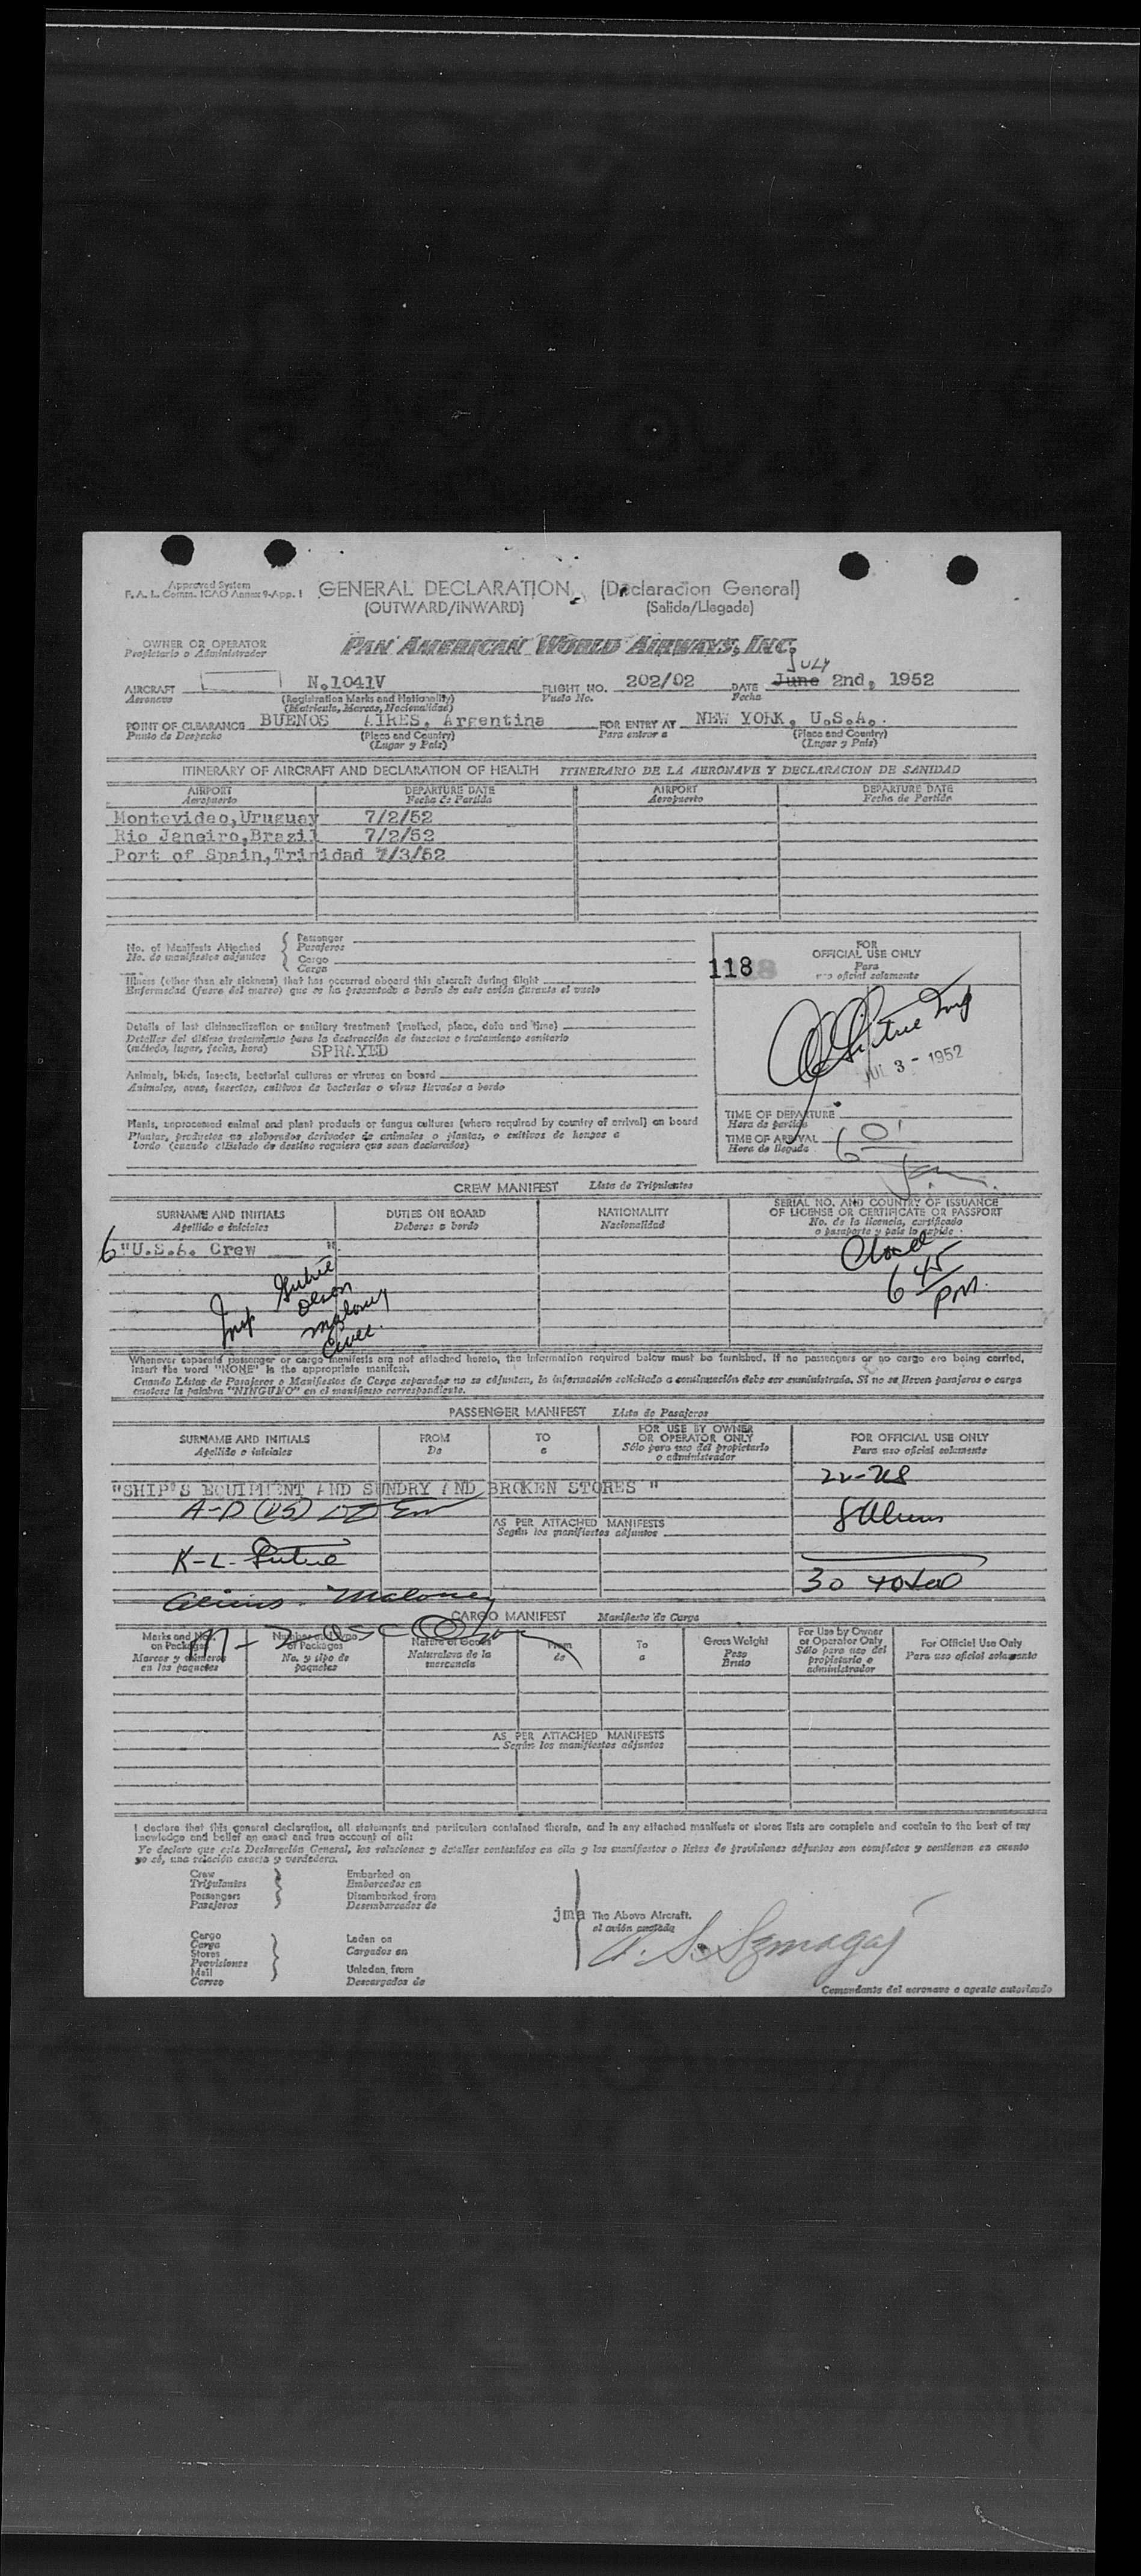 Approved System
F. A. L. Comm. ICAO Annex 9-App. 1
GENERAL DECLARATION (Declaracion General)
(OUTWARD/INWARD) (Salida/Llegada)
OWNER OR OPERATOR
Propietario o Administrador
PAN AMERICAN WORLD AIRWAYS, INC.
July
AIRCRAFT N.1041V FLIGHT NO. 202/02 DATE June 2nd, 1952
Aeronave (Registration Marks and Nationality) Vuelo No. Fecha
(Matricula, Marcas, Nacionalidad)
POINT OF CLEARANCE BUENOS AIRES, Argentina FOR ENTRY AT NEW YORK, U.S.A.
Punto de Despacho (Place and Country) Para entrar a (Place and Country)
(Lugar y País) (Lugar y País)
ITINERARY OF AIRCRAFT AND DECLARATION OF HEALTH ITINERARIO DE LA AERONAVE Y DECLARACION DE SANIDAD
AIRPORT DEPARTURE DATE AIRPORT DEPARTURE DATE
Aeropuerto Fecha de Partida Aeropuerto Fecha de Partida
Montevideo,Uruguay 7/2/52
Rio Janeiro,Brazil 7/2/52
Port of Spain,Trinidad 7/3/52
No. of Manifests Attached
No. de manifiestos adjuntos
Passenger
Pasajeros
Cargo
Carga
FOR
OFFICIAL USE ONLY
Para
uso oficial solamente
118
Illness (other than air sickness) that has occurred aboard this aircraft during flight
Enfermedad (fuera del mareo) que se ha presentado a bordo de este avión durante el vuelo
Details of last disinsectization or sanitary treatment (method, place, date and time)
Detalles del último tratamiento para la destrucción de insectos o tratamiento sanitario
(método, lugar, fecha, hora) SPRAYED
JUL 3 - 1952
Animals, birds, insects, bacterial cultures or viruses on board
Animales, aves, insectos, cultivos de bacterias o virus llevados a bordo
Plants, unprocessed animal and plant products or fungus cultures (where required by country of arrival) on board
Plantas, productos no elaborados derivados de animales o plantas, o cultivos de hongos a
bordo (cuando el Estado de destino requiere que sean declarados)
TIME OF DEPARTURE
Hora de partida
TIME OF ARRIVAL
Hora de llegada
CREW MANIFEST Lista de Tripulantes
SURNAME AND INITIALS DUTIES ON BOARD NATIONALITY SERIAL NO. AND COUNTRY OF ISSUANCE
Apellido e iniciales Deberes a bordo Nacionalidad OF LICENSE OR CERTIFICATE OR PASSPORT
No. de la licencia, certificado
o pasaporte y país lo expide
6 "U.S.A. Crew "
Closed
6 45
PM.
Insp Olson
Maloney
Whenever separate passenger or cargo manifests are not attached hereto, the information required below must be furnished. If no passengers or no cargo are being carried,
insert the word "NONE" in the appropriate manifest.
Cuando Listas de Pasajeros o Manifiestos de Carga separados no se adjuntan, la información solicitada a continuación debe ser suministrada. Si no se lleven pasajeros o carga
anótese la palabra "NINGUNO" en el manifiesto correspondiente.
PASSENGER MANIFEST Lista de Pasajeros
SURNAME AND INITIALS FROM TO FOR USE BY OWNER OR OPERATOR ONLY FOR OFFICIAL USE ONLY
Apellido e iniciales De a Sólo para uso del propietario o administrador Para uso oficial solamente
22-US
"SHIP'S EQUIPMENT AND SUNDRY AND BROKEN STORES "
A-D (US)
8 Aliens
AS PER ATTACHED MANIFESTS
Según los manifiestos adjuntos
K-L-
30 total
Aliens - Maloney
CARGO MANIFEST Manifiesto de Carga
M-Z USC Olson
Marks and Nos. on Packages Number and Type of Packages Nature of Goods From To Gross Weight For Use by Owner or Operator Only For Official Use Only
Marcas y números en los paquetes No. y tipo de paquetes Naturaleza de la mercancía de a Peso Bruto Sólo para uso del propietario o administrador Para uso oficial solamente
AS PER ATTACHED MANIFESTS
Según los manifiestos adjuntos
I declare that this general declaration, all statements and particulars contained therein, and in any attached manifests or stores lists are complete and contain to the best of my
knowledge and belief an exact and true account of all:
Yo declaro que esta Declaración General, las relaciones y detalles contenidos en ella y los manifiestos o listas de provisiones adjuntos son completos y contienen en cuanto
yo sé, una relación exacta y verdadera.
Crew Embarked on
Tripulantes Embarcados en
Passengers Disembarked from
Pasajeros Desembarcados de
jma The Above Aircraft.
el avión anotado
Cargo Laden on
Carga Cargados en
Stores
Provisiones
Mail Unladen from
Correo Descargados de
Comandante del aeronave o agente autorizado